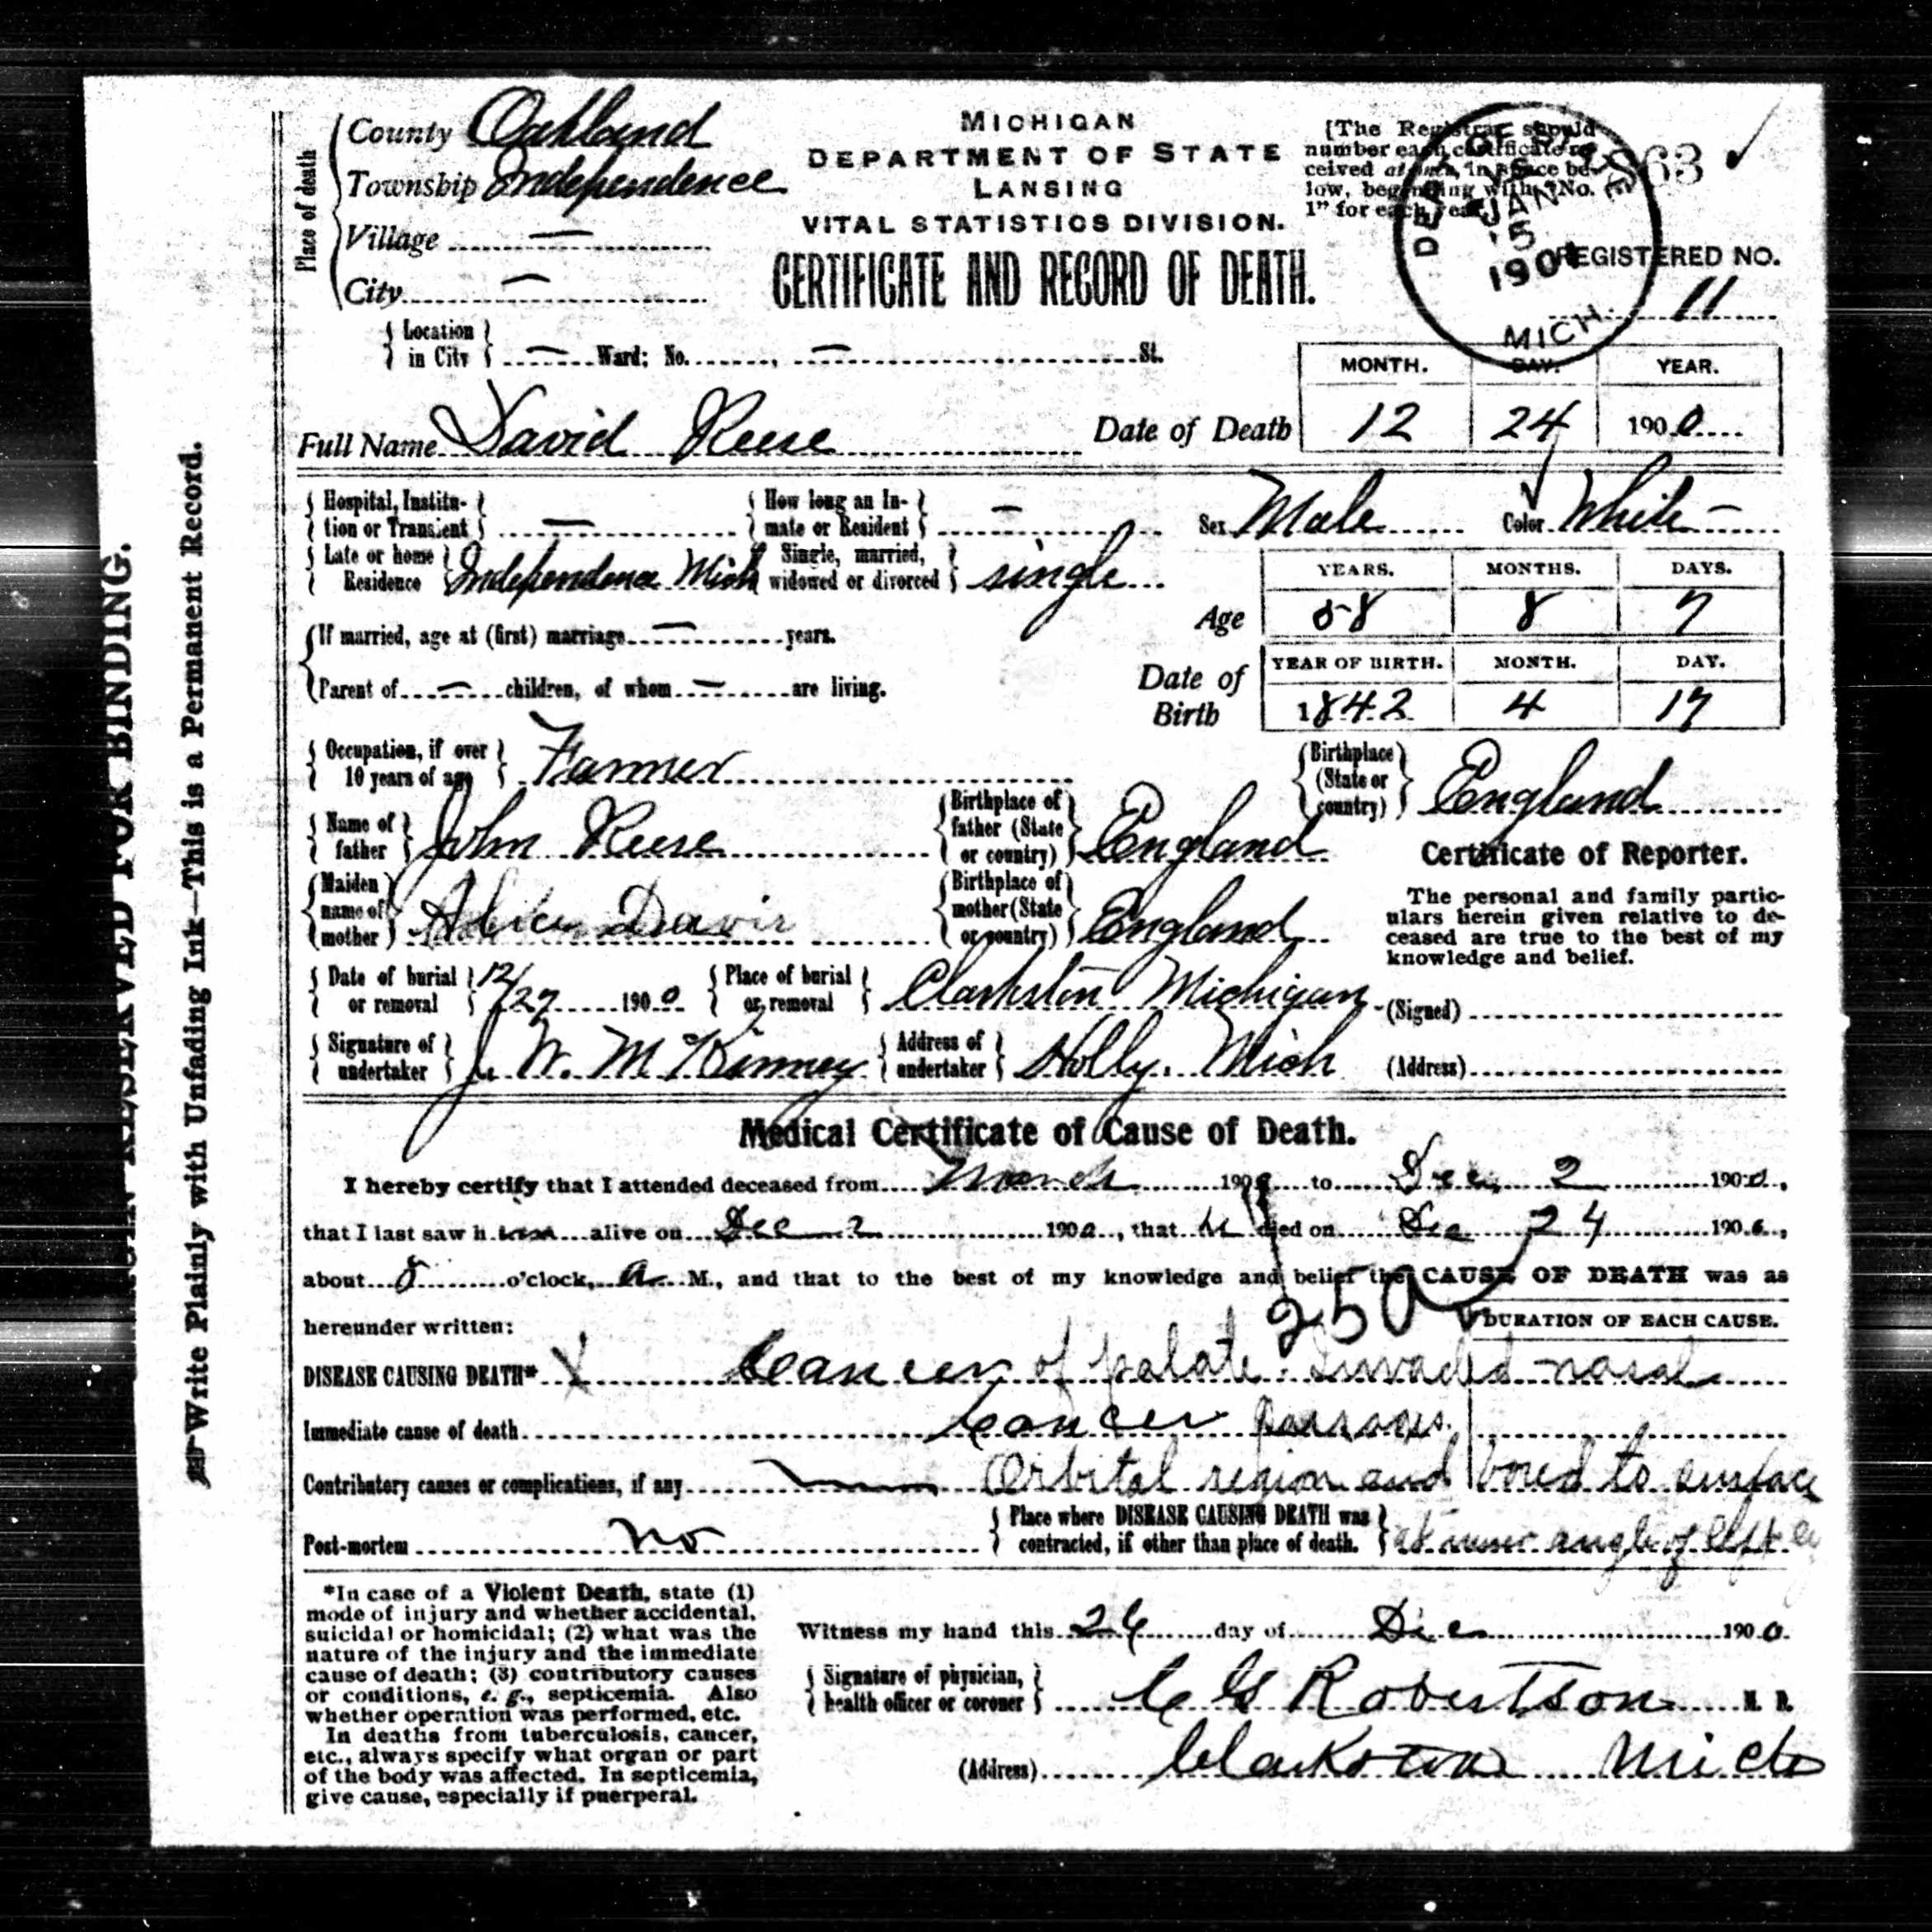 County Oakland
Township Independence
Village —
City —
Place of death
MICHIGAN
DEPARTMENT OF STATE
LANSING
VITAL STATISTICS DIVISION.
CERTIFICATE AND RECORD OF DEATH.
[The Registrar should
number each certificate re-
ceived at once, in space be-
low, beginning with "No.
1" for each year.]
JAN
15
190
MICH.
REGISTERED NO.
11
Location in City — Ward; No. , — St.
Full Name David Reese
Date of Death
MONTH. DAY. YEAR.
12 24 1900
Hospital, Institu-tion or Transient — How long an In-mate or Resident — Sex Male Color White —
Late or home Residence Independence Mich Single, married, widowed or divorced single
Age
YEARS. MONTHS. DAYS.
58 8 7
If married, age at (first) marriage — years.
Parent of — children, of whom — are living.
Date of Birth
YEAR OF BIRTH. MONTH. DAY.
1842 4 17
Occupation, if over 10 years of age Farmer
Birthplace (State or country) England
Name of father John Reese Birthplace of father (State or country) England
Maiden name of mother Davis Birthplace of mother (State or country) England
Date of burial or removal 12/27 1900 Place of burial or removal Clarkston Michigan
Signature of undertaker J. W. McKinney Address of undertaker Holly. Mich
Certificate of Reporter.
The personal and family partic-
ulars herein given relative to de-
ceased are true to the best of my
knowledge and belief.
(Signed)
(Address)
Medical Certificate of Cause of Death.
I hereby certify that I attended deceased from March 190 to Dec 2 1900,
that I last saw him alive on Dec 2 1900, that he died on Dec 24 1900,
about 5 o'clock, a. M., and that to the best of my knowledge and belief the CAUSE OF DEATH was as
hereunder written: 250 DURATION OF EACH CAUSE.
DISEASE CAUSING DEATH* X Cancer of palate. Invaded nasal
Immediate cause of death Cancer passages.
Contributory causes or complications, if any — Orbital region and bored to surface
Post-mortem no Place where DISEASE CAUSING DEATH was contracted, if other than place of death. at inner angle of left
*In case of a Violent Death, state (1)
mode of injury and whether accidental,
suicidal or homicidal; (2) what was the
nature of the injury and the immediate
cause of death; (3) contributory causes
or conditions, e. g., septicemia. Also
whether operation was performed, etc.
In deaths from tuberculosis, cancer,
etc., always specify what organ or part
of the body was affected. In septicemia,
give cause, especially if puerperal.
Witness my hand this 26 day of Dec 1900.
Signature of physician, health officer or coroner C G Robertson M. D.
(Address) Clarkston Mich
Write Plainly with Unfading Ink—This is a Permanent Record.
RESERVED FOR BINDING.